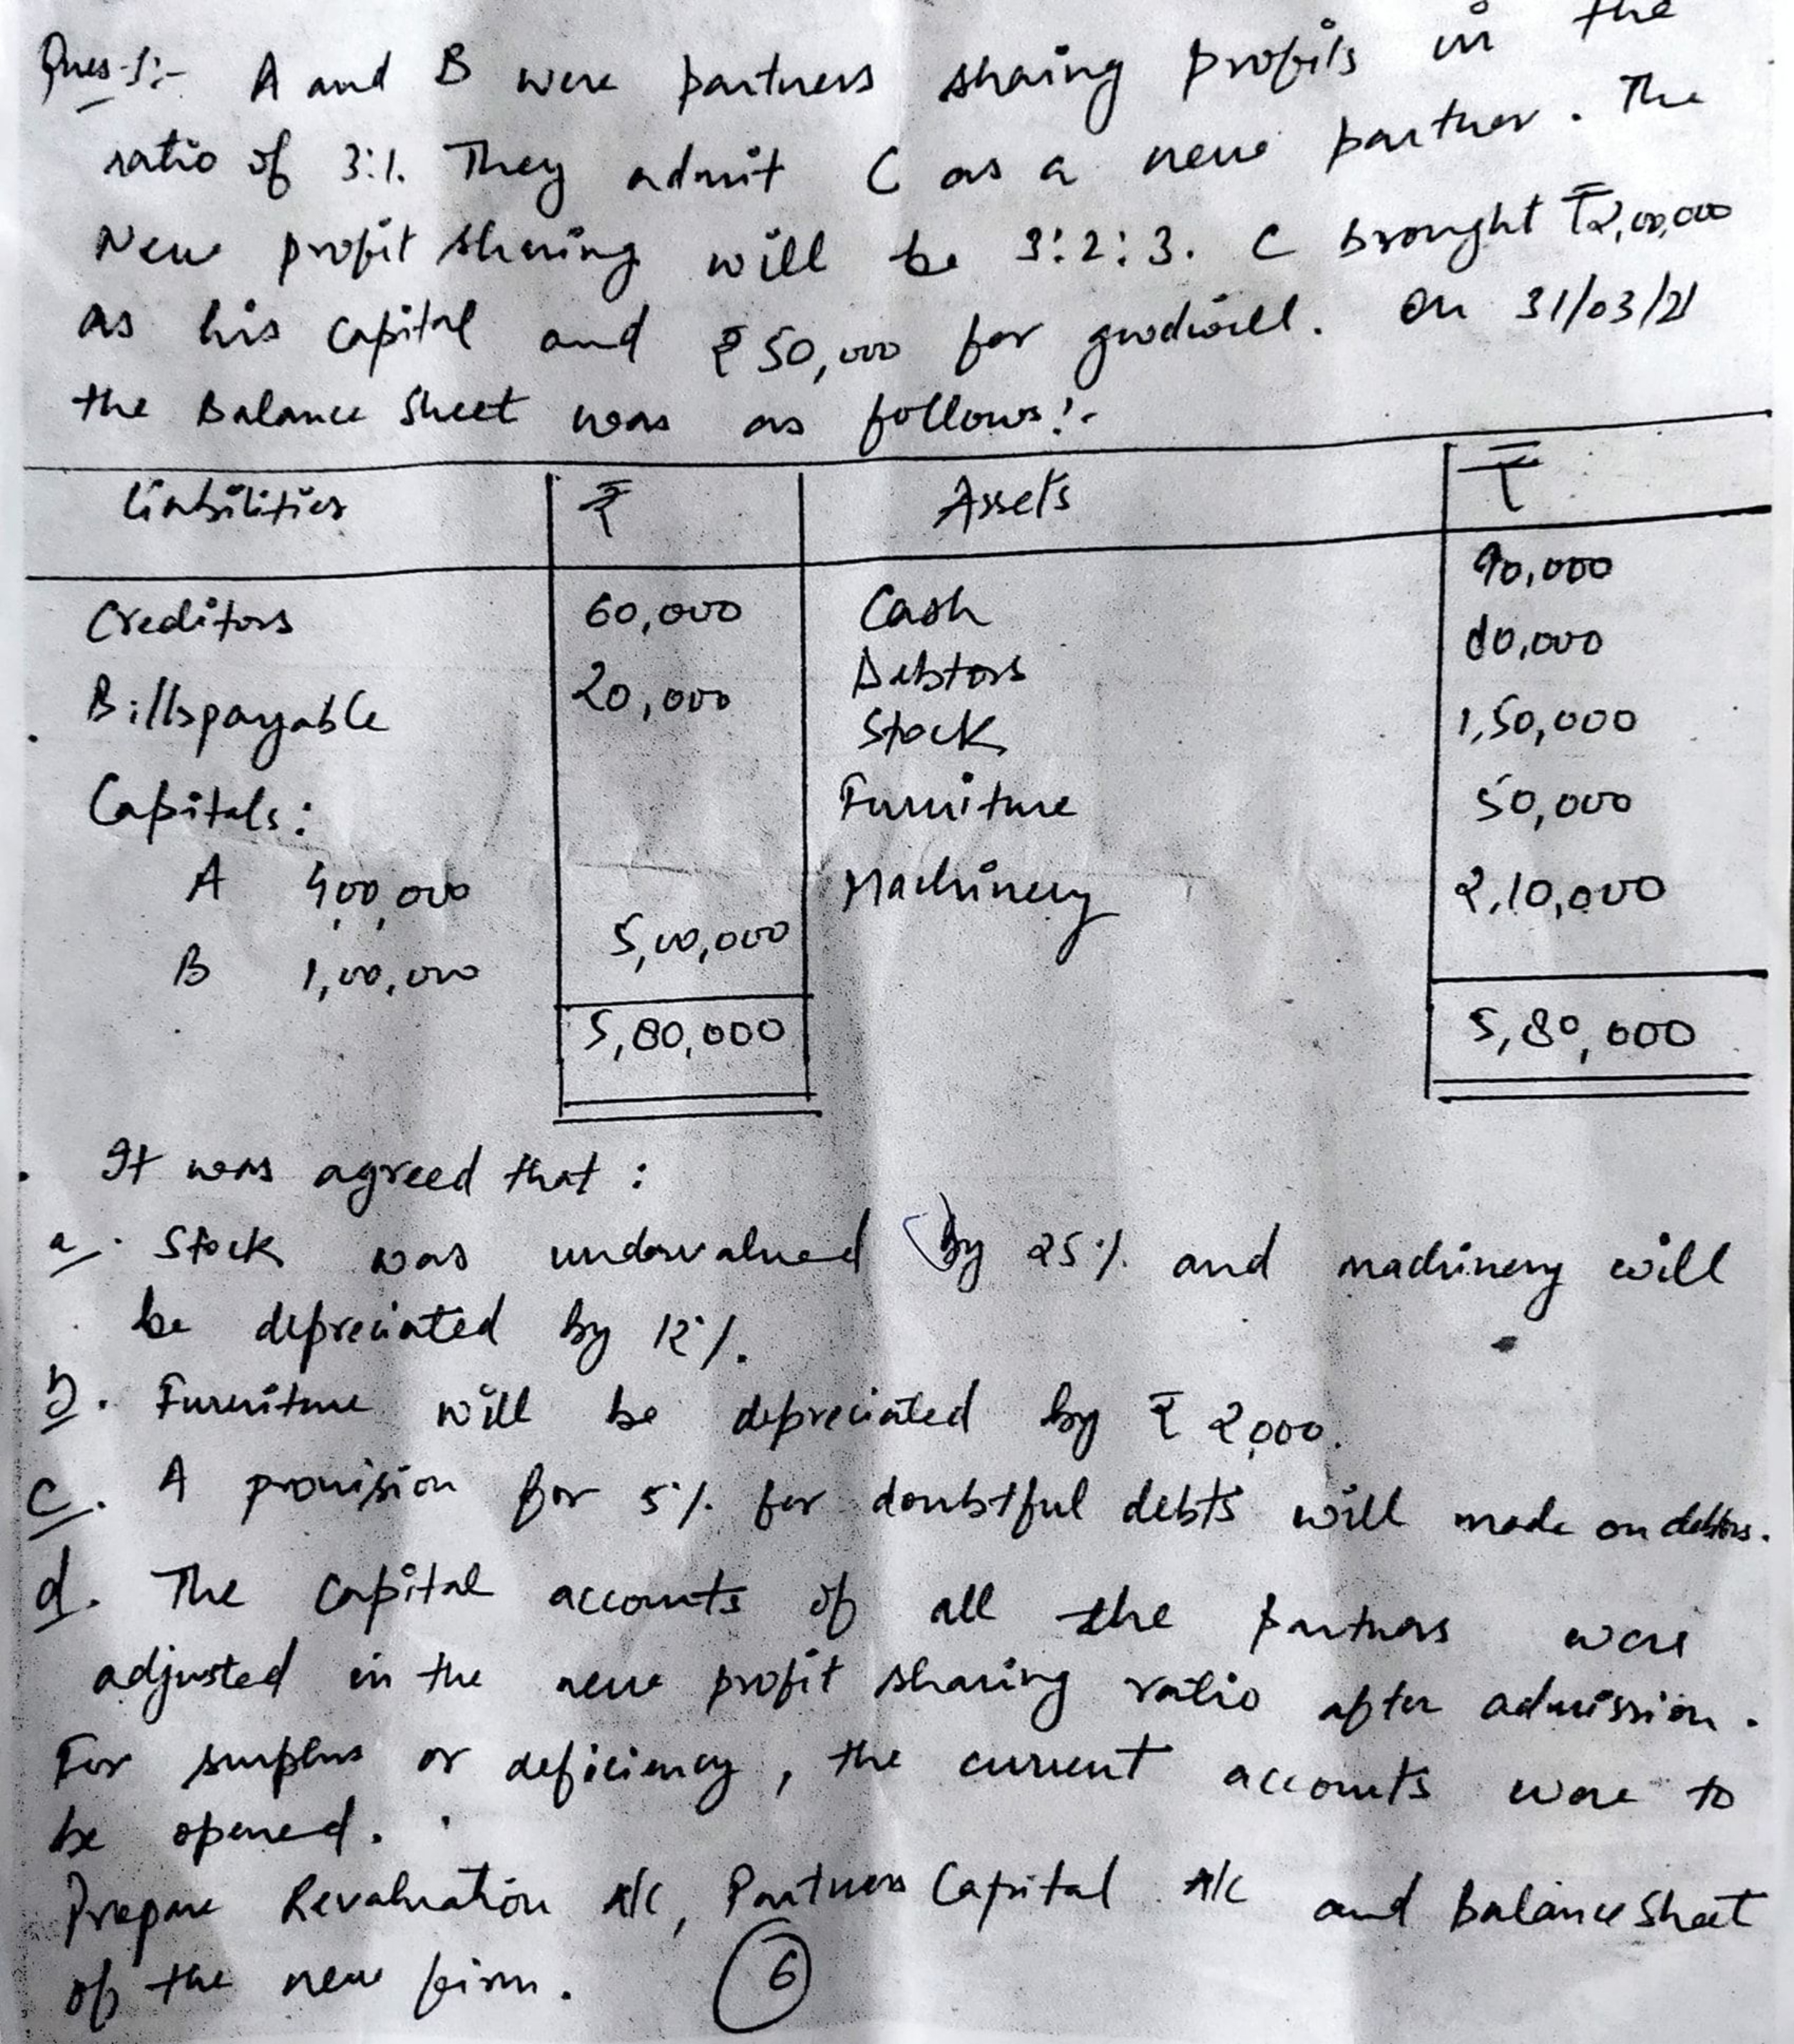 Ques-1:- A and B were partners sharing profits in the
ratio of 3:1. They admit C as a new partner. The
New profit sharing will be 3:2:3. C brought ₹2,00,000
as his capital and ₹50,000 for goodwill. On 31/03/21
the Balance Sheet was as follows:-
Liabilities ₹ Assets ₹
Creditors 60,000 Cash 90,000
Bills payable 20,000 Debtors 80,000
Stock 1,50,000
Capitals: Furniture 50,000
A 4,00,000 Machinery 2,10,000
5,00,000
B 1,00,000
5,80,000 5,80,000
It was agreed that :
a. Stock was undervalued by 25% and machinery will
be depreciated by 12%.
b. Furniture will be depreciated by ₹ 2,000.
c. A provision for 5% for doubtful debts will made on debtors.
d. The capital accounts of all the partners were
adjusted in the new profit sharing ratio after admission.
For surplus or deficiency, the current accounts were to
be opened.
Prepare Revaluation A/C, Partners Capital A/C and Balance Sheet
of the new firm. 6